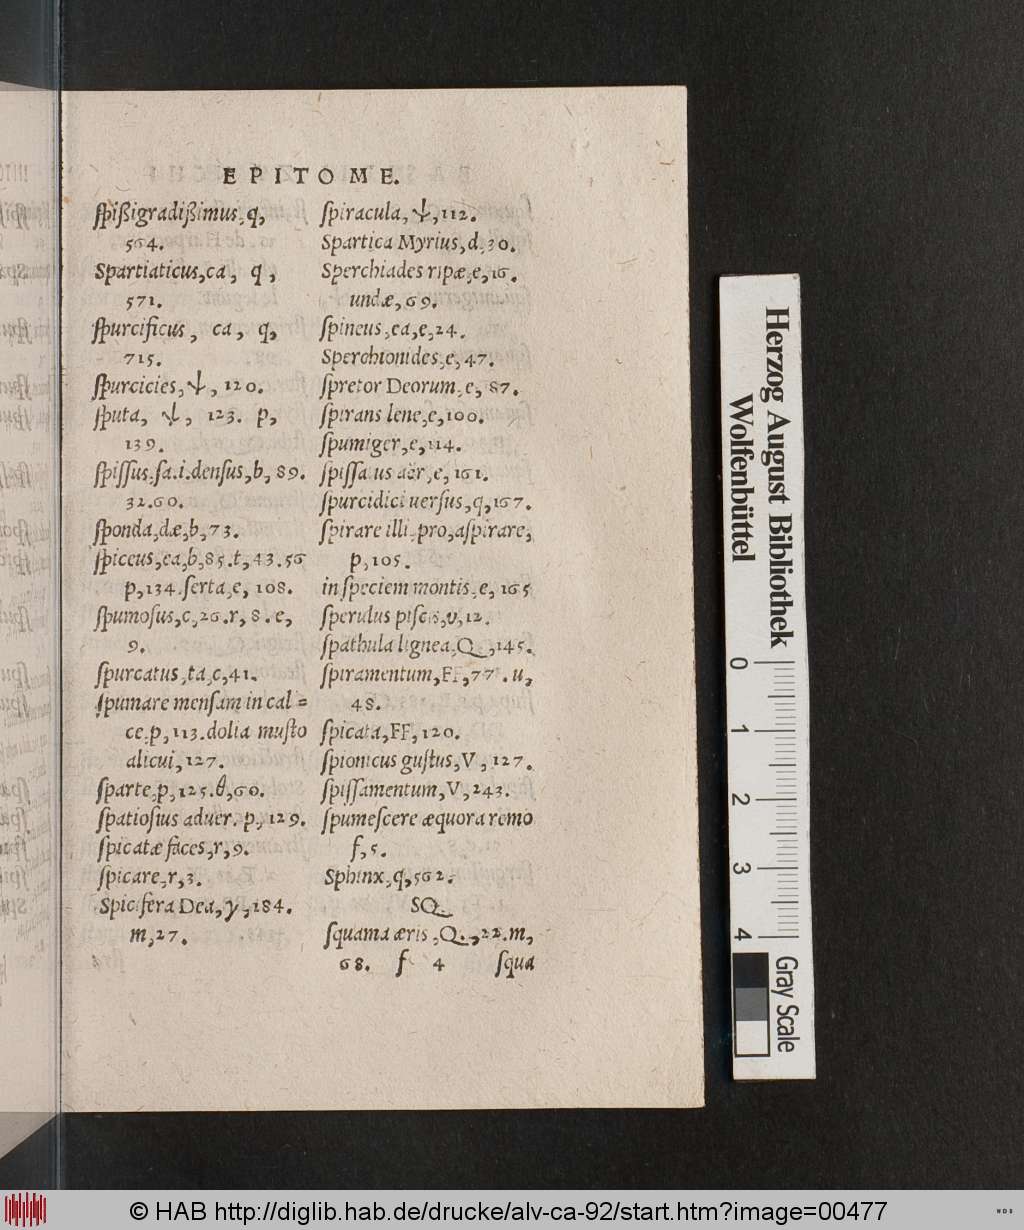 EPITOME.
ſpißigradißimus, q,
564.
Spartiaticus, ca, q,
571.
ſpurcificus, ca, q,
715.
ſpurcicies, ψ, 120.
ſputa, ψ, 123. p,
139.
ſpiſſus.ſa.i.denſus, b, 89.
32.60.
ſponda, dæ, b, 73.
ſpiceus, ea, b, 85. t, 43.56
p, 134. ſerta, e, 108.
ſpumoſus, c, 26. r, 8. e,
9.
ſpurcatus, ta, c, 41.
ſpumare menſam in cal=
ce. p, 113. dolia muſto
alicui, 127.
ſparte, p, 125. θ, 60.
ſpatioſius aduer. p, 129.
ſpicatæ faces, r, 9.
ſpicare, r, 3.
Spicifera Dea, γ, 184.
m, 27.
ſpiracula, ψ, 112.
Spartica Myrius, d, 30.
Sperchiades ripæ, e, 16.
undæ, 69.
ſpineus, ea, e, 24.
Sperchionides, e, 47.
ſpretor Deorum, e, 87.
ſpirans lene, e, 100.
ſpumiger, e, 114.
ſpiſſatus aër, e, 161.
ſpurcidici uerſus, q, 167.
ſpirare illi, pro, aſpirare,
p, 105.
in ſpeciem montis, e, 165
ſperulus piſcis, v, 12.
ſpathula lignea, Q, 145.
ſpiramentum, FF, 77. u,
48.
ſpicata, FF, 120.
ſpionicus guſtus, V, 127.
ſpiſſamentum, V, 243.
ſpumeſcere æquora remo
f, 5.
Sphinx, q, 562.
SQ
ſquama æris, Q, 22. m,
68. f 4 ſqua
Herzog August Bibliothek
Wolfenbüttel
0 1 2 3 4
Gray Scale
© HAB http://diglib.hab.de/drucke/alv-ca-92/start.htm?image=00477
WDB